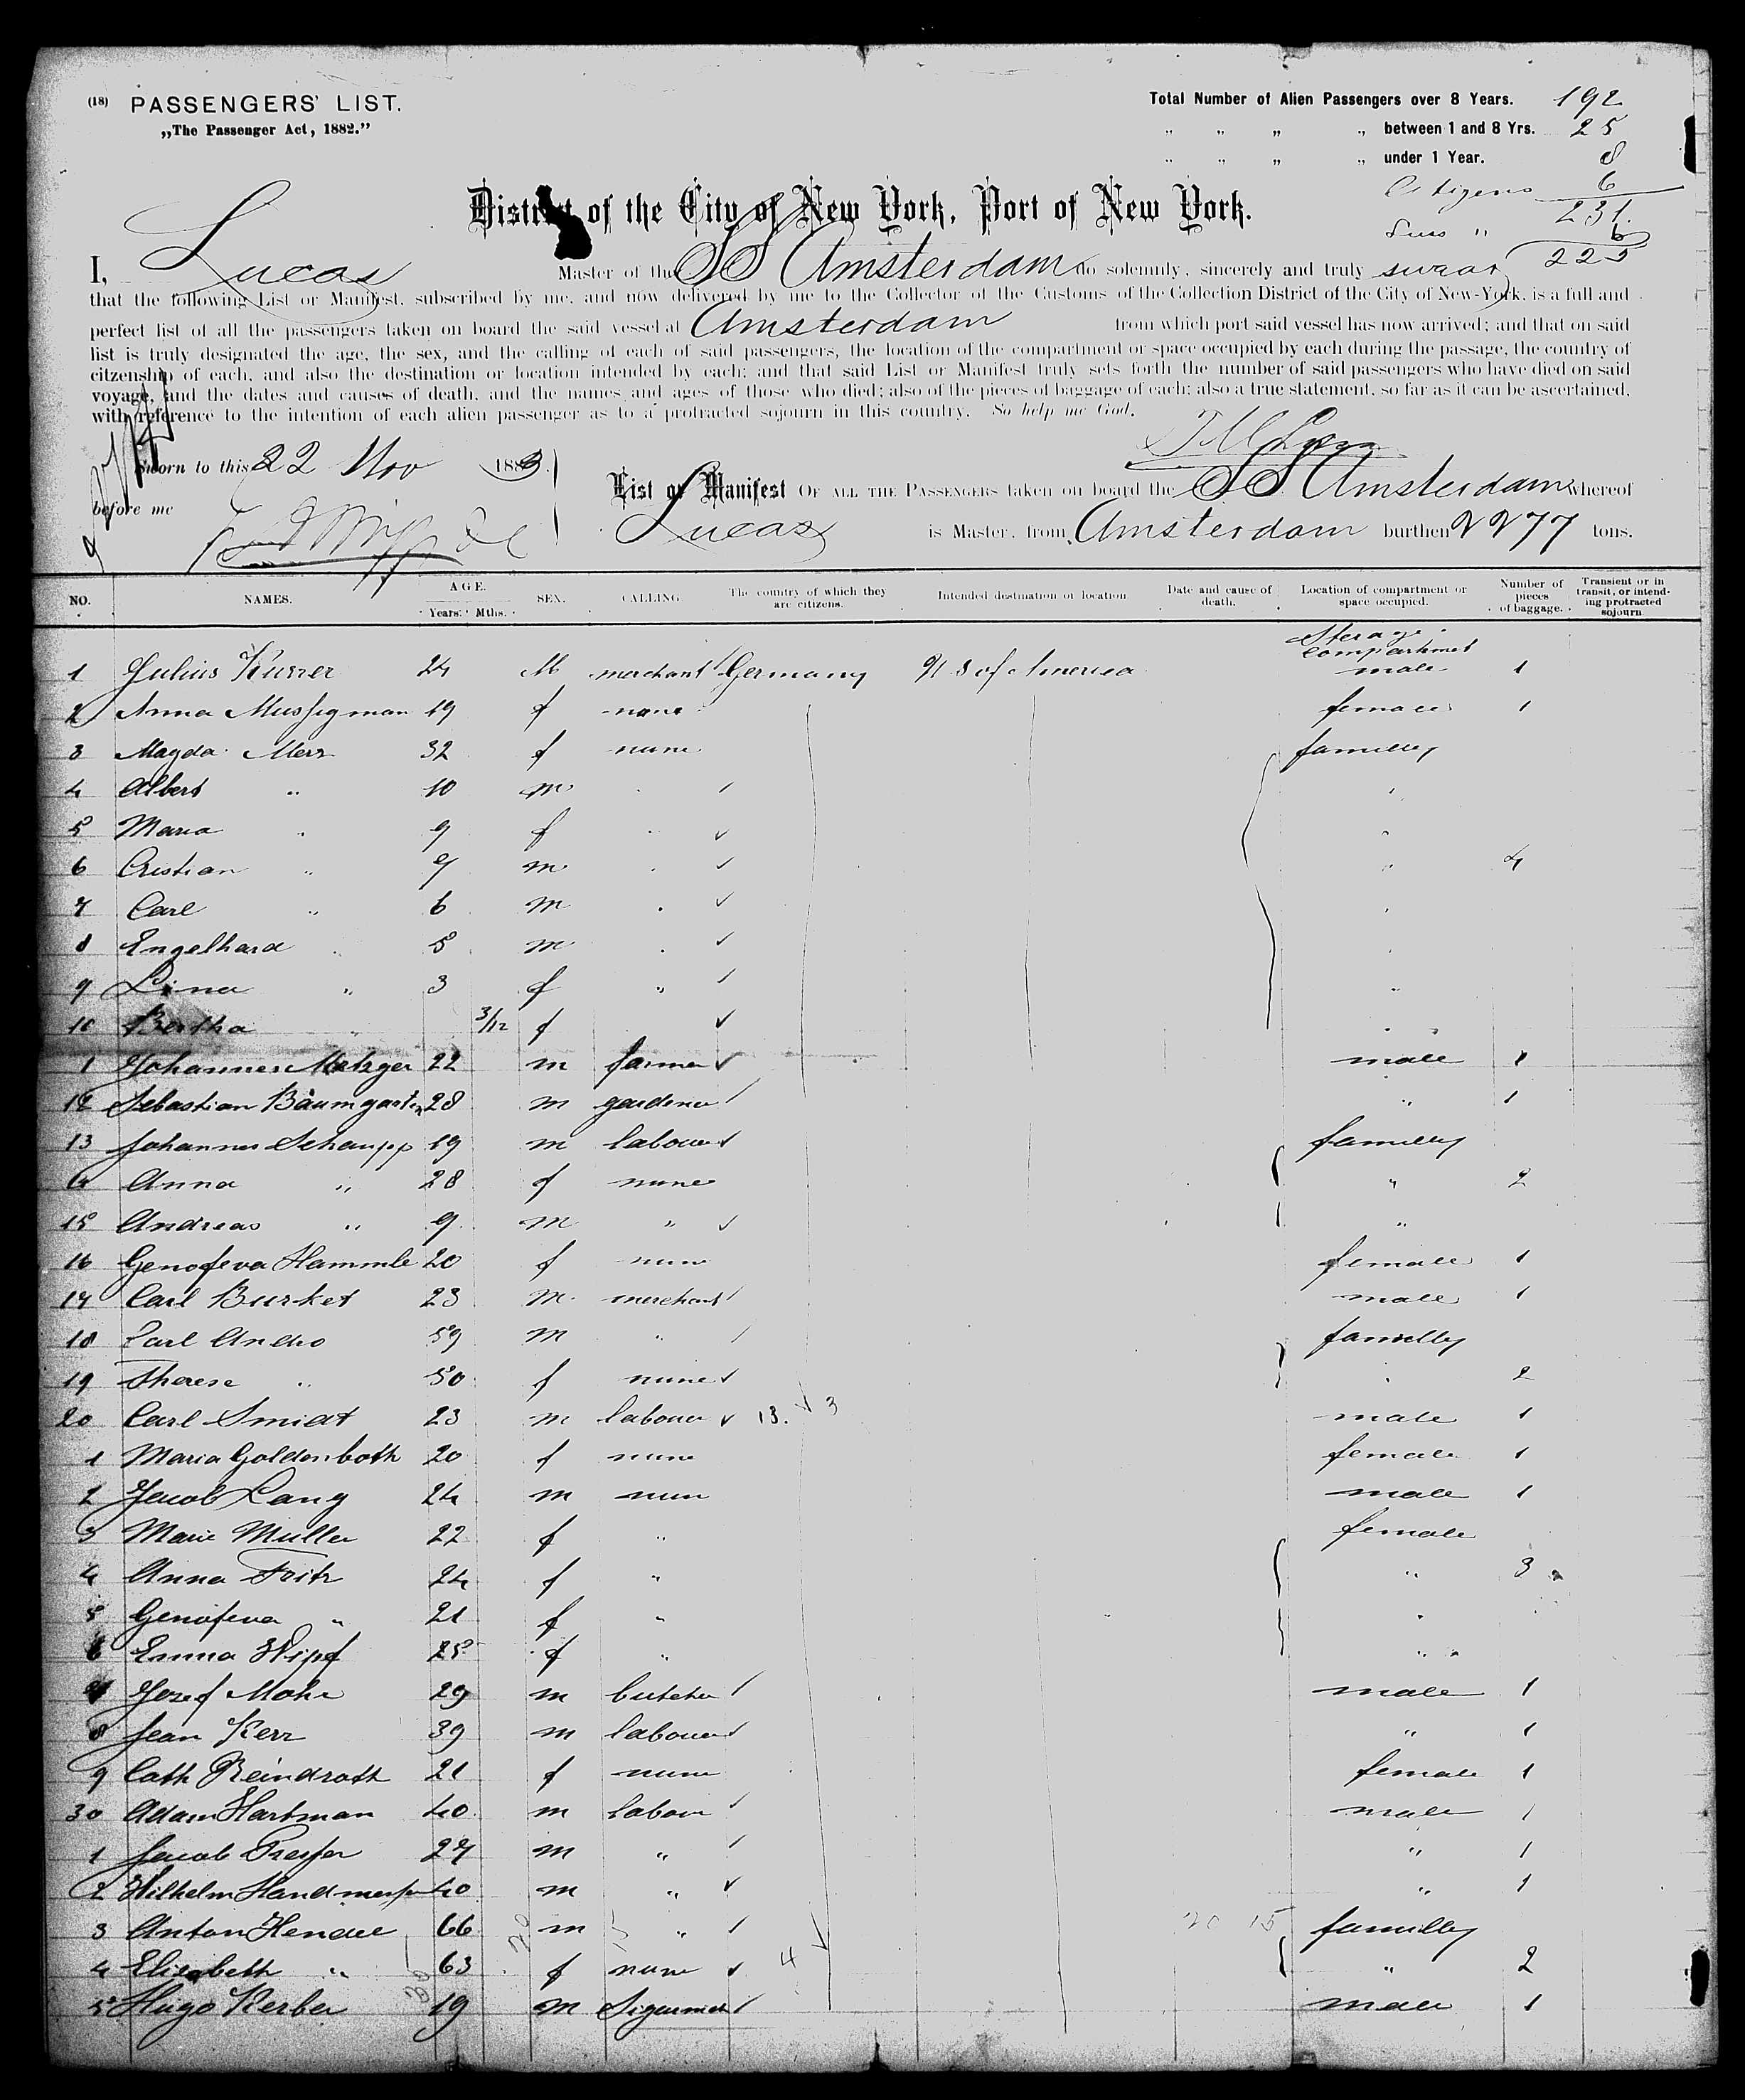 (18) PASSENGERS' LIST.
„The Passenger Act, 1882.”
Total Number of Alien Passengers over 8 Years. 192
„ „ „ „ between 1 and 8 Yrs. 25
„ „ „ „ under 1 Year. 8
Citizens 6
231.
Less " 6
District of the City of New York, Port of New York.
I, Lucas Master of the SS Amsterdam do solemnly, sincerely and truly swear 225
that the following List or Manifest, subscribed by me, and now delivered by me to the Collector of the Customs of the Collection District of the City of New-York, is a full and
perfect list of all the passengers taken on board the said vessel at Amsterdam from which port said vessel has now arrived; and that on said
list is truly designated the age, the sex, and the calling of each of said passengers, the location of the compartment or space occupied by each during the passage, the country of
citzenship of each, and also the destination or location intended by each; and that said List or Manifest truly sets forth the number of said passengers who have died on said
voyage, and the dates and causes of death, and the names and ages of those who died; also of the pieces of baggage of each; also a true statement, so far as it can be ascertained,
with reference to the intention of each alien passenger as to a protracted sojourn in this country. So help me God.
Sworn to this 22 Nov 1883.
before me
List or Manifest OF ALL THE PASSENGERS taken on board the SS Amsterdam whereof
Lucas is Master, from Amsterdam burthen 2277 tons.
NO. NAMES. AGE. Years. Mths. SEX. CALLING. The country of which they are citizens. Intended destination or location. Date and cause of death. Location of compartment or space occupied. Number of pieces of baggage. Transient or in transit, or intending protracted sojourn.
Sterage Compartment
1 Julius Kurrer 24 M merchant Germany U S of America male 1
2 Anna Mussigman 19 f none female 1
3 Magda Merz 32 f none familly
4 Albert " 10 m
5 Maria " 9 f
6 Cristian " 9 m 4
7 Carl " 6 m
8 Engelhard 5 m
9 Lina " 3 f "
10 Bertha " 3/12 f
1 Johannes Metzger 22 m farmer male 1
12 Sebastian Baumgarten 28 m gardener " 1
13 Johannes Schaupp 19 m labouer familly
14 Anna " 28 f none " 2
15 Andreas " 9 m " "
16 Genofeva Hammele 20 f none female 1
17 Carl Burket 23 m merchant male 1
18 Carl 59 m " familly
19 Therese " 50 f none 2
20 Carl Smidt 23 m labouer 13. 3 male 1
1 Maria Goldenboth 20 f none female 1
2 Jacob Lang 24 m none male 1
3 Marie Muller 22 f " female
4 Anna Fritz 24 f " " 3
5 Genofeva " 21 f "
6 Emma Wipf 25 f " "
7 Jozef Mohr 29 m butcher male 1
8 Jean Kerz 39 m labouer " 1
9 Cath Reindroth 21 f none female 1
30 Adam Hartman 40 m labour male 1
1 Jacob 27 m " " 1
2 Wilhelm 40 m " " 1
3 Anton 66 m " 20 15 familly
4 Elisabeth " 63 f none 4 " 2
5 Hugo Kerber 19 m male 1